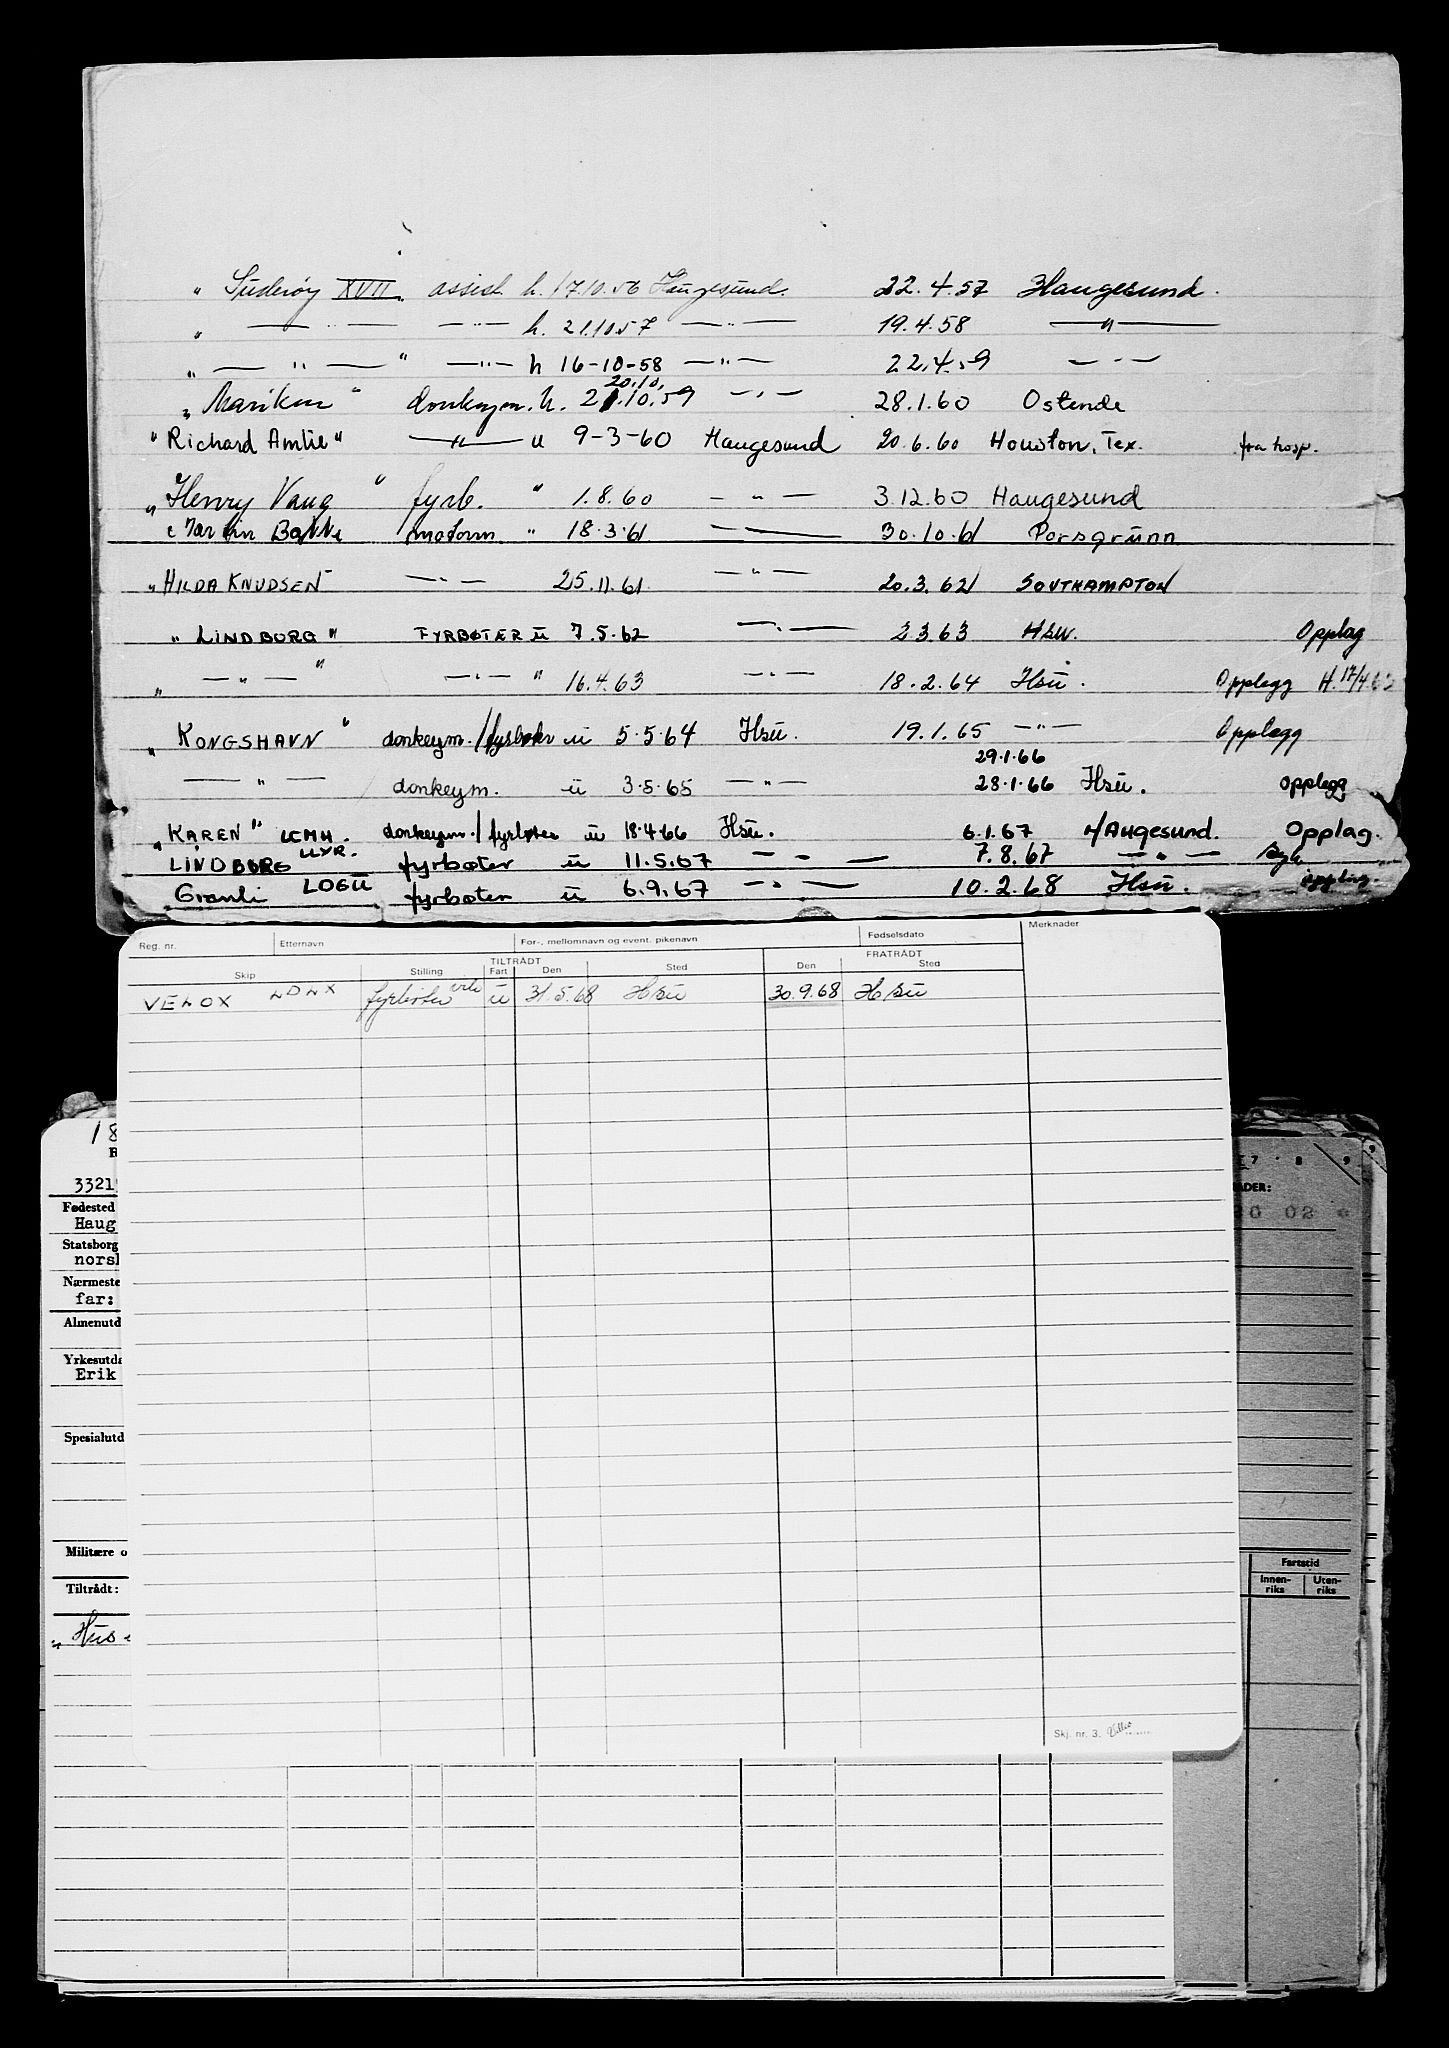 " Suderøy XVII. assist. h. 17.10.56 Haugesund. 22.4.57 Haugesund.
" — " — — " — h. 21.10.57 — " — 19.4.58 — " —
" — " — " — " — h 16-10-58 — " — 22.4.59 — " —
20.10.
" Marikken " donkeym. h. 21.10.59 — " — 28.1.60 Ostende
" Richard Amlie " — " — u 9-3-60 Haugesund 20.6.60 Houston, Tex. fra hosp.
" Henry Vaug " fyrb. " 1.8.60 — " — 3.12.60 Haugesund
" Martin Bakke motorm " 18.3.61 — " — 30.10.61 Porsgrunn
" HILDA KNUDSEN — " — 25.11.61 — " — 20.3.62 SOUTHAMPTON
" LINDBORG " FYRBØTER u 7.5.62 — " — 2.3.63 HSU. Opplag
" — " — " — " — " 16.4.63 — " — 18.2.64 Hsu. Opplegg H. 17/4 63
" KONGSHAVN " donkeym./fyrbøter u 5.5.64 Hsu. 19.1.65 — " — Opplegg
29.1.66
— " — donkeym. u 3.5.65 — " — 28.1.66 Hsu. opplegg
" KAREN " LEMH. donkeym./fyrbøter u 18.4.66 Hsu. 6.1.67 HAugesund. Opplag.
LINDBORG LLYR. fyrbøter u 11.5.67 — " — 7.8.67 — " —
Granli LOEU fyrbøter u 6.9.67 — " — 10.2.68 Hsu. opplag.
Reg. nr. Etternavn For-, mellomnavn og event. pikenavn Fødselsdato Merknader
TILTRÅDT FRATRÅDT
Skip Stilling Fart Den Sted Den Sted
VELOX LDLX fyrbøter u 31.5.68 Hsu 30.9.68 Hsu
18
R
3321
Fødested
Haug
Statsborg
nors
Nærmeste
far:
Almenutd
Yrkesutda
Erik
Spesialutd
Militære o
Tiltrådt:
" Hus
7 8 9 9
ADER:
30 02
Fartstid
Innen-riks Uten-riks
Skj. nr. 3.